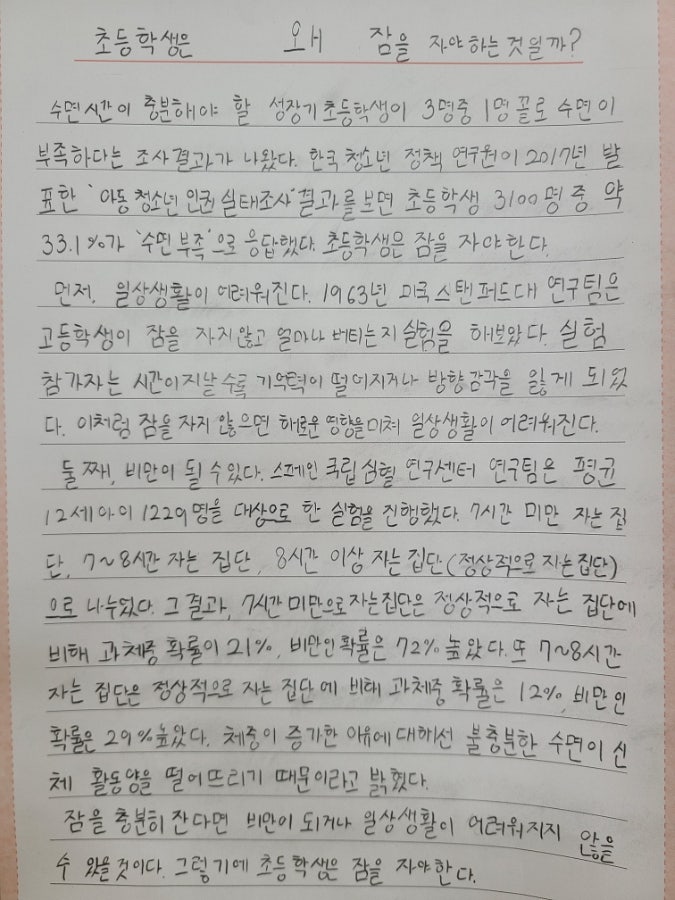 초등학생은 왜 잠을 자야하는것일까?
수면시간이 충분해야 할 성장기 초등학생이 3명중 1명 꼴로 수면이
부족하다는 조사결과가 나왔다. 한국 청소년 정책 연구원이 2017년 발
표한 '아동 청소년 인권 실태조사' 결과를 보면 초등학생 3100명 중 약
33.1%가 '수면 부족'으로 응답했다. 초등학생은 잠을 자야한다.
먼저, 일상생활이 어려워진다. 1963년 미국 스탠퍼드대 연구팀은
고등학생이 잠을 자지않고 얼마나 버티는지 실험을 해보았다. 실험
참가자는 시간이지날수록 기억력이 떨어지거나 방향감각을 잃게 되었
다. 이처럼 잠을 자지 않으면 해로운 영향을미쳐 일상생활이 어려워진다.
둘째, 비만이 될 수있다. 스페인 국립심혈 연구센터 연구팀은 평균
12세아이 1229명을 대상으로 한 실험을 진행했다. 7시간 미만 자는 집
단, 7~8시간 자는 집단, 8시간 이상 자는 집단(정상적으로 자는집단)
으로 나누었다. 그 결과, 7시간 미만으로자는집단은 정상적으로 자는 집단에
비해 과체중 확률이 21%, 비만인확률은 72% 높았다. 또 7~8시간
자는 집단은 정상적으로 자는 집단에 비해 과체중 확률은 12%, 비만인
확률은 29%높았다. 체중이 증가한 이유에대해선 불충분한 수면이 신
체 활동양을 떨어뜨리기 때문이라고 밝혔다.
잠을 충분히 잔다면 비만이 되거나 일상생활이 어려워지지 않을
수 있을것이다. 그렇기에 초등학생은 잠을 자야한다.